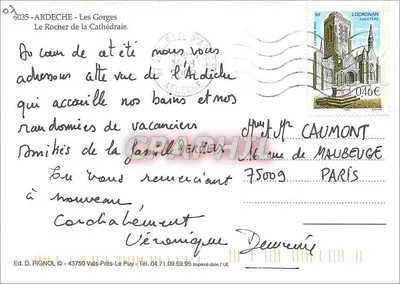 6035 - ARDECHE - Les Gorges
Le Rocher de la Cathédraie.
Au cœur de cet été nous vous
adressons cette vue de l'Ardèche
qui accueille nos bains et nos
randonnées de vacanciers
Amitiés de la famille
En vous remerciant
à nouveau
Cordialement
Véronique
LOCRONAN
FINISTÈRE
0,46€
Mme et Mr CAUMONT
16 rue de MAUBEUGE
75009 PARIS
Ed. D. PIGNOL © - 43750 Vals-Près-Le Puy - Tél. 04.71.09.59.95 Imprimé dans l'UE